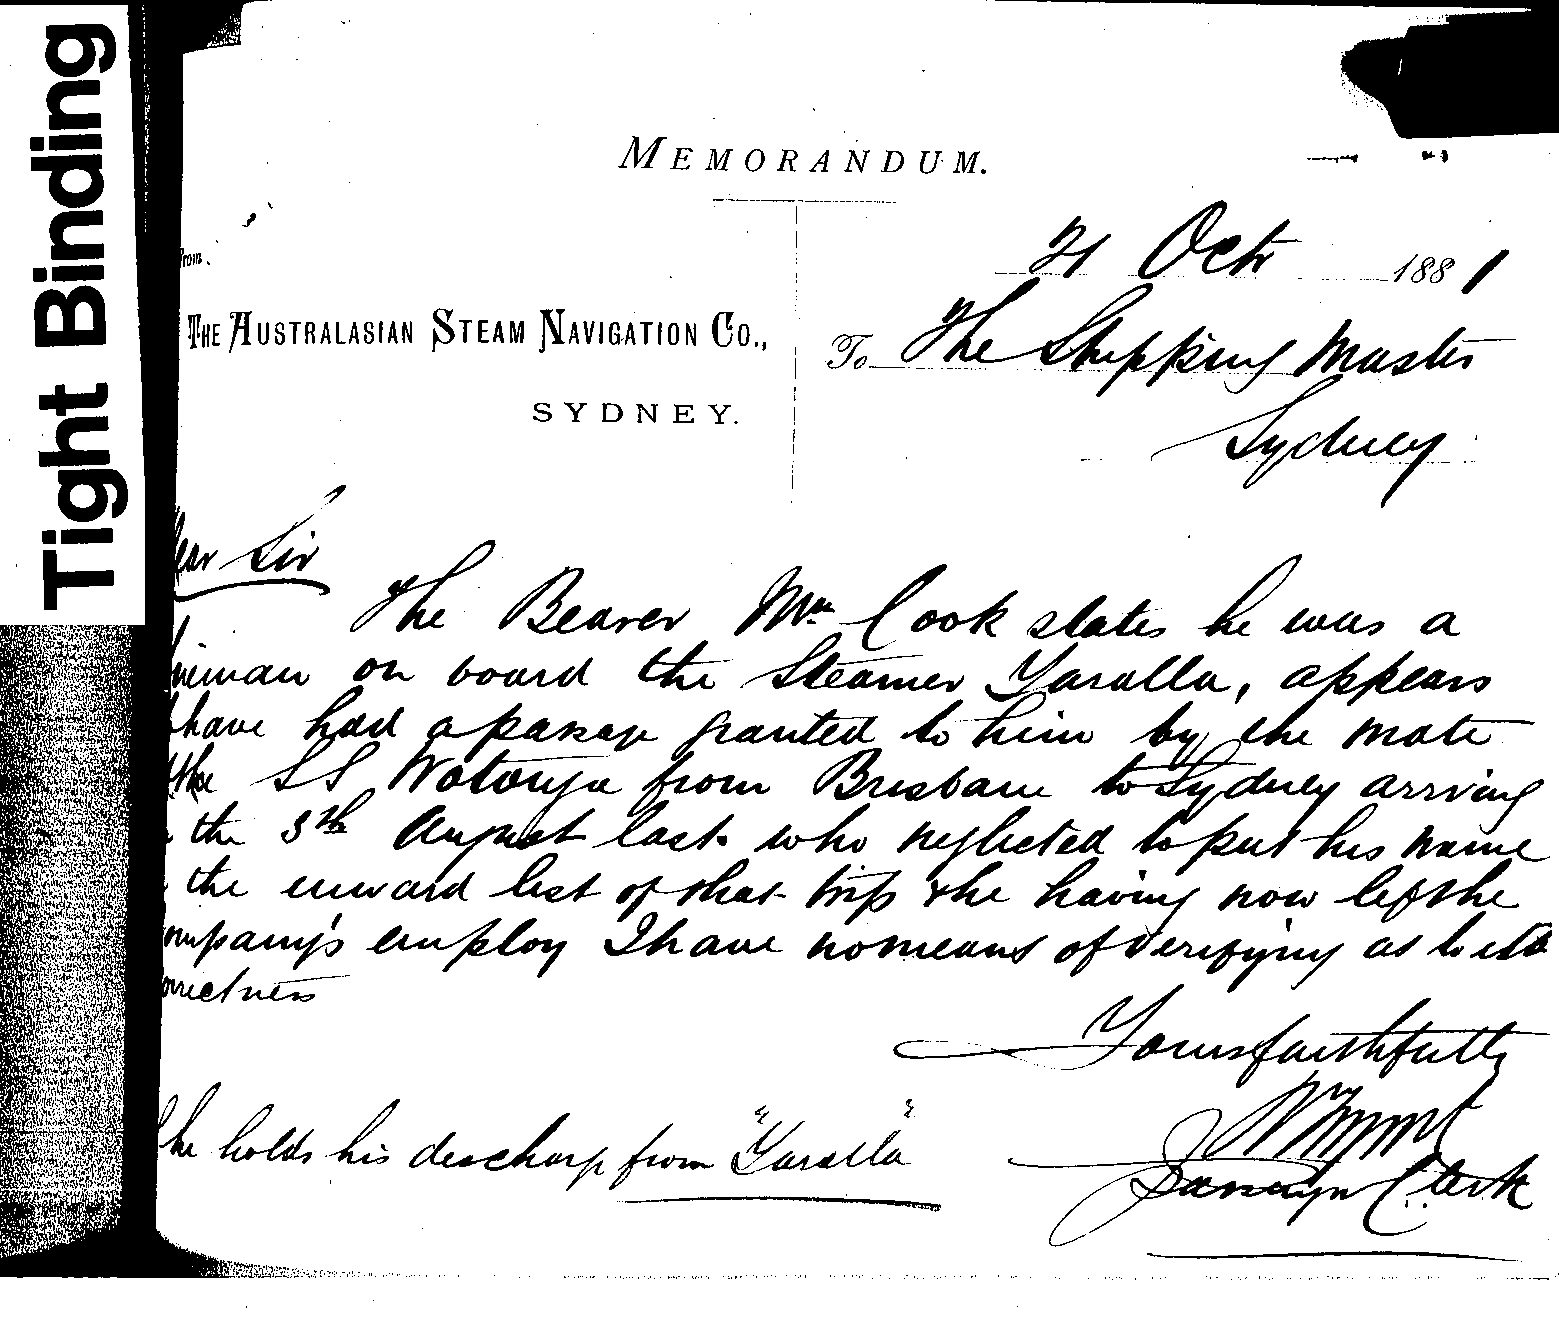 Tight Binding
MEMORANDUM.
21 Octr 1881
From.
THE AUSTRALASIAN STEAM NAVIGATION CO.,
SYDNEY.
To The Shipping Master
Sydney
Dear Sir
The Bearer Wm Cook states he was a
fireman on board the Steamer Yaralla, appears
to have had a passage granted to him by the mate
of the SS Wotonga from Brisbane to Sydney arriving
the 5th August last. who neglected to put his name
the inward list of that trip & he having now left the
Company's employ I have no means of verifying as to its
correctness
Yours faithfully
he holds his discharge from "Yaralla"
Passage Clerk